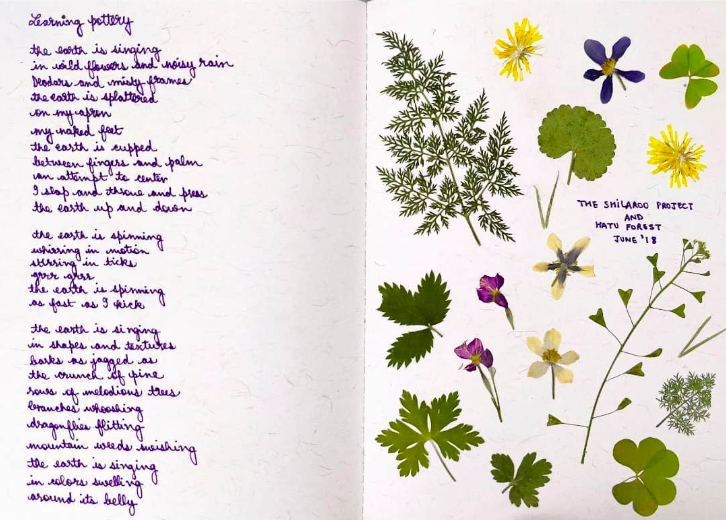 Learning pottery
the earth is singing
in wild flowers and noisy rain
Deodars and misty frames
the earth is splattered
on my apron
my naked feet
the earth is cupped
between fingers and palm
an attempt to center
I slap and throw and press
the earth up and down
the earth is spinning
whirring in motion
stirring in ticks
grrr grrr
the earth is spinning
as fast as I kick
the earth is singing
in shapes and textures
barks as jagged as
the crunch of pine
rows of melodious trees
branches whooshing
dragonflies flitting
mountain weeds swishing
the earth is singing
in colors swelling
around its belly
THE SHILAROO PROJECT
AND
HATU FOREST
JUNE '18